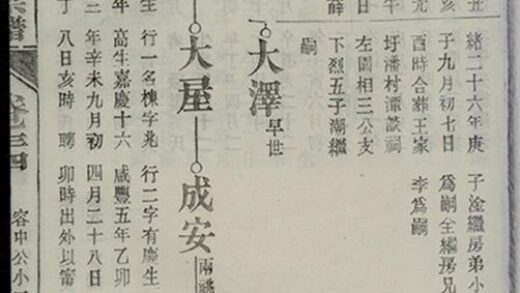 緒二十六年庚 子淦繼房弟小
子九月初七日 為嗣全繼房兄
酉時合葬王家 李為嗣
圩潘村潭談祠
左園相三公支
下烈五子潮繼
嗣
大澤 早世
大屋 成安 兩祧
生 行一名棟字兆 行二字有慶生
年 高生嘉慶十六 咸豐五年乙卯
三 年辛未九月初 四月二十八日
丁 八日亥時聘 卯時出外以甯
譜 卷三四 容中公小